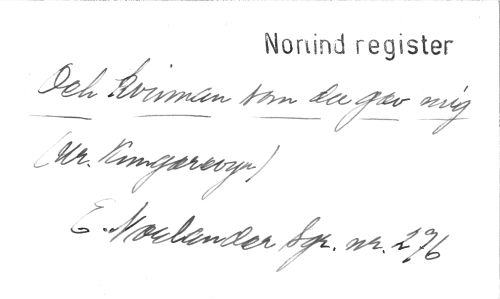 Norlind register
Och kvinnan som du gav mig
(Ur. Kungarevyn)
E. Norlander Sgr. nr. 276